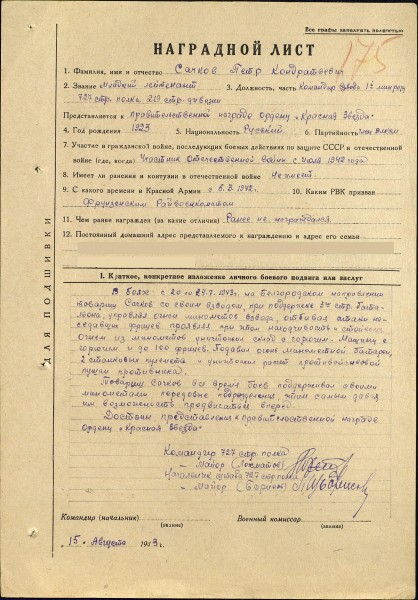 Все графы заполнять полностью
НАГРАДНОЙ ЛИСТ
175
1. Фамилия, имя и отчество Сачков Петр Кондратьевич
2. Звание Младший лейтенант 3. Должность, часть Командир взвода 1й минроты
727 стр. полка 219 стр. дивизии
Представляется к правительственной награде ордену "Красная Звезда"
4. Год рождения 1925 5. Национальность Русский 6. Партийность член ВЛКСМ
7. Участие в гражданской войне, последующих боевых действиях по защите СССР и отечественной
войне (где, когда) Участник Отечественной войны с июля 1942 года
8. Имеет ли ранения и контузии в отечественной войне Не имеет
9. С какого времени в Красной Армии с 1942г. 10. Каким РВК призван
Фрунзенским Райвоенкоматом
11. Чем ранее награжден (за какие отличия) Ранее не награждался
12. Постоянный домашний адрес представляемого к награждению и адрес его семьи
ДЛЯ ПОДШИВКИ
I. Краткое, конкретное изложение личного боевого подвига или заслуг
В боях с 20 по 24.7.1943г. на Белгородском направлении
товарищ Сачков со своим взводом, при поддержке 2го стр. баталь-
она, управлял огнем минометов взвода, отбивая атаки на-
седавших фрицев проявлял при этом находчивость и
Огнем из минометов уничтожил склад с горючим. Машину с
горючим и до 100 фрицев. Подавил огонь минометной батареи,
2 станковых пулемета и уничтожил расчет противотанковой
пушки противника.
Товарищ Сачков во время боев поддерживал своими
минометами передовые подразделения, этим самым давал
им возможность продвигаться вперед.
Достоин представления к Правительственной награде
Ордену "Красная Звезда"
Командир 727 стр. полка
— Майор
Начальник штаба 727 стр. полка
— Майор
Командир (начальник)
(звание)
Военный комиссар
(звание)
„15„ Августа 1943 г.